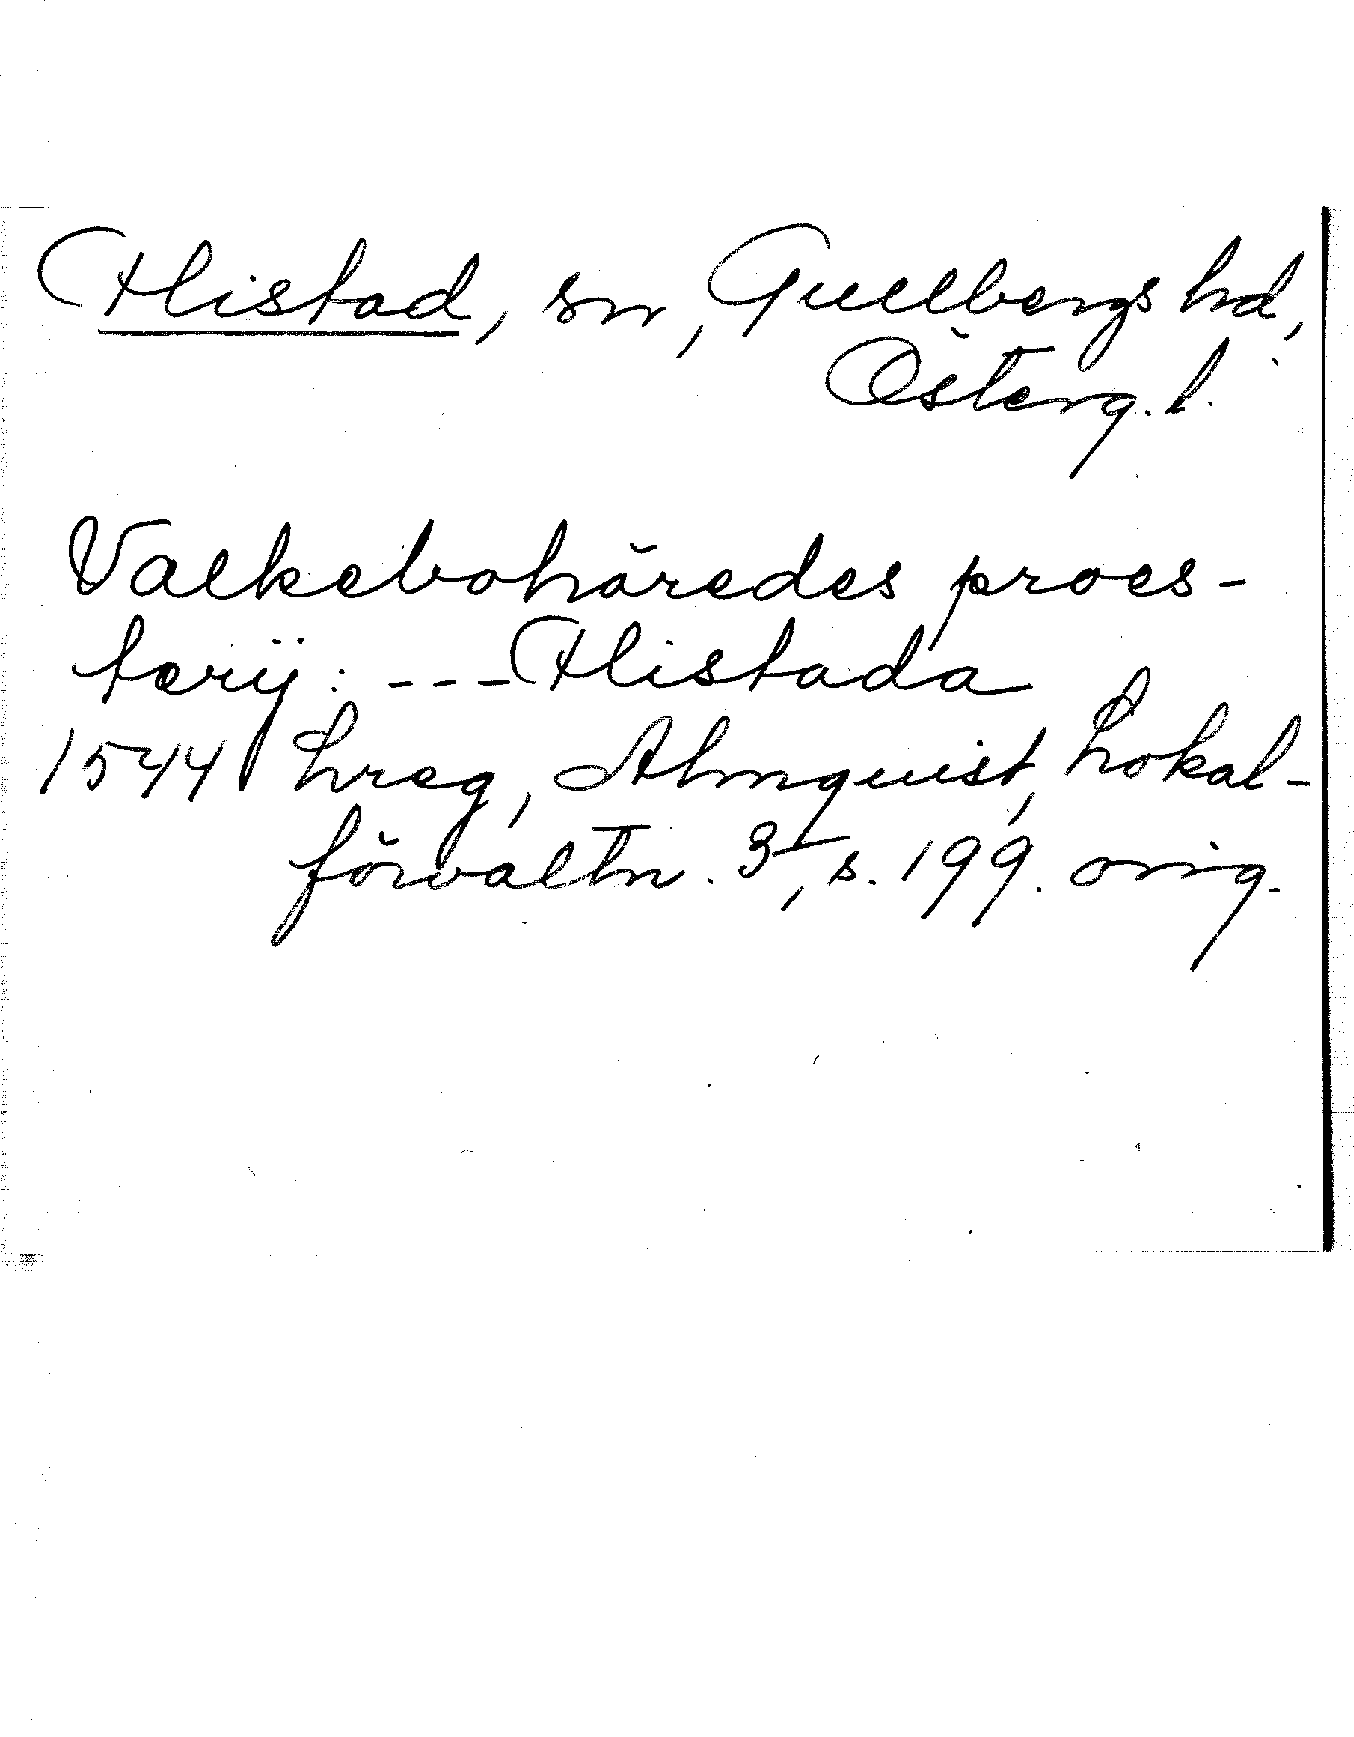 Flistad, sn, Gullbergs hd,
Österg. l.
Valkebohäredes proes-
terij: --- Flistada
1544 Lreg, Almquist, Lokal-
förvaltn. 3, s. 199. orig.